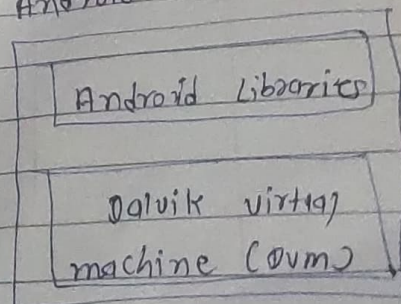 Android Libraries
Dalvik virtual
machine (DVM)